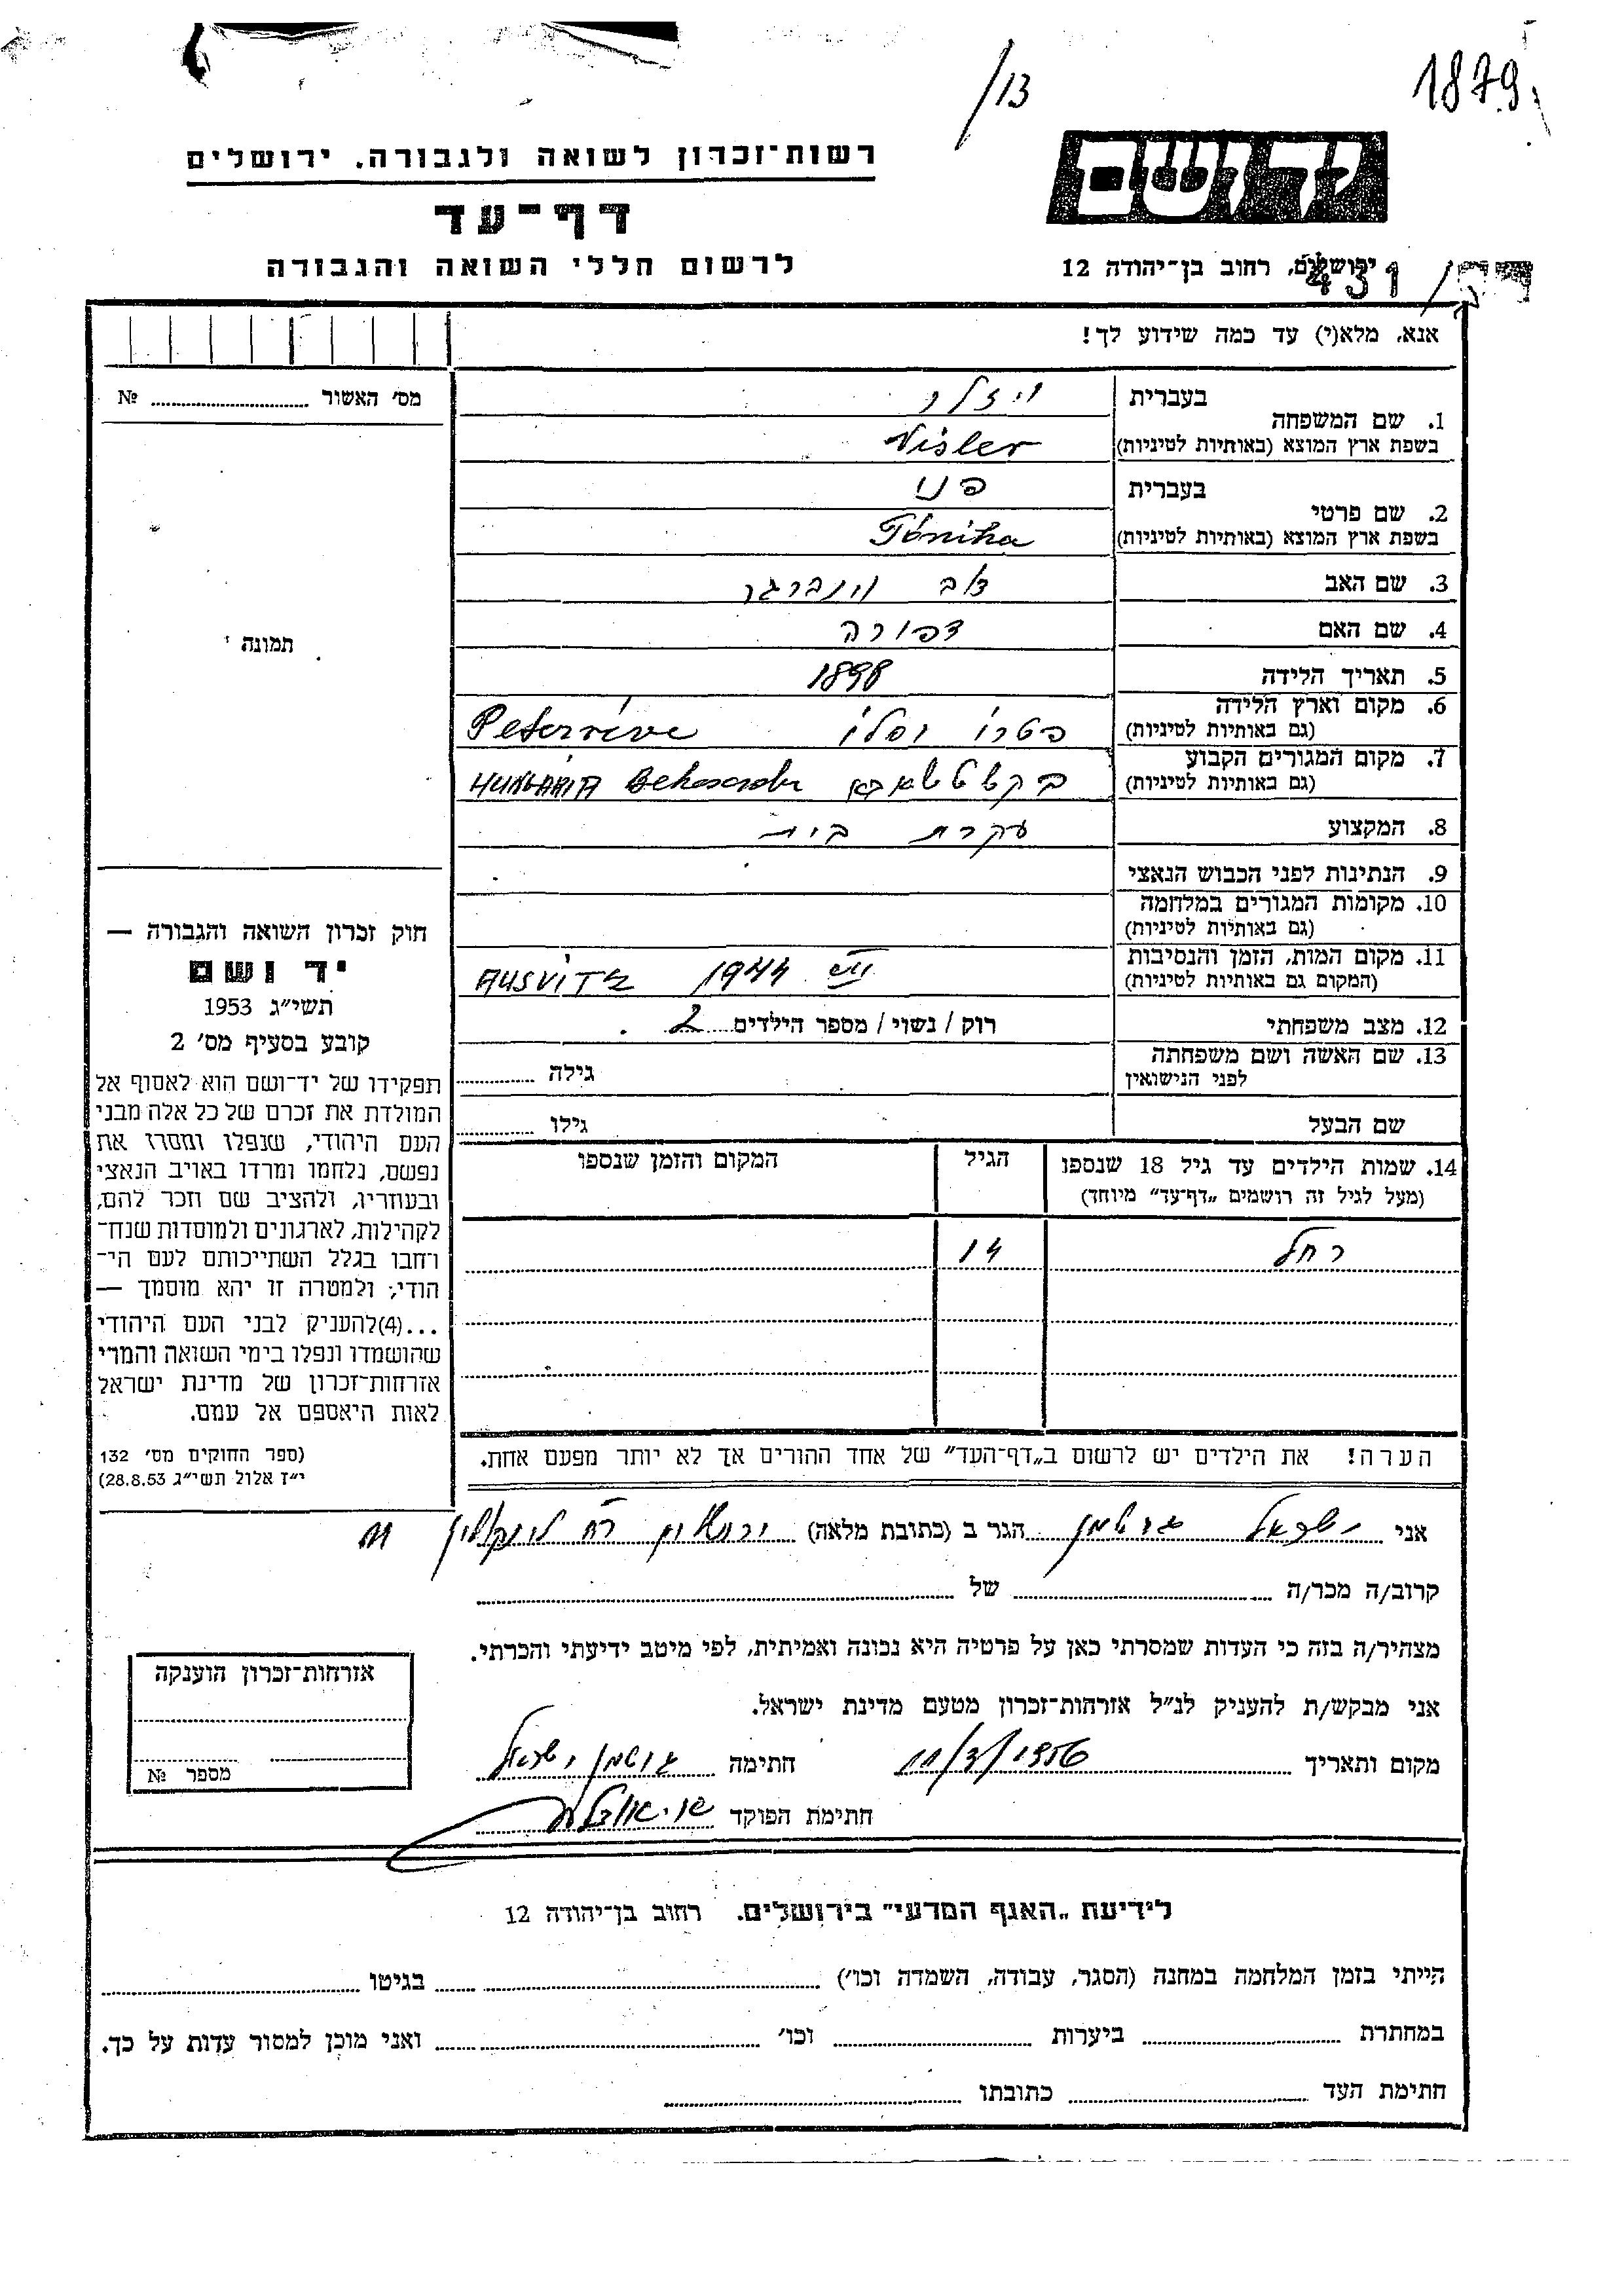 /13
1879
רשות־זכרון לשואה ולגבורה. ירושלים
ידושם
דף־עד
לרשום חללי השואה והגבורה
ירושלים, רחוב בן־יהודה 12
431
אנא, מלא(י) עד כמה שידוע לך!
מס' האשור № 
1. שם המשפחה
בעברית ויזלר
בשפת ארץ המוצא (באותיות לטיניות) Visler
2. שם פרטי
בעברית פני
בשפת ארץ המוצא (באותיות לטיניות)
3. שם האב זאב וינברגר
4. שם האם צפורה
5. תאריך הלידה 1898
6. מקום וארץ הלידה
(גם באותיות לטיניות) Petërreve
7. מקום המגורים הקבוע
(גם באותיות לטיניות) HUNGARIA
8. המקצוע עקרת בית
9. הנתינות לפני הכבוש הנאצי
10. מקומות המגורים במלחמה
(גם באותיות לטיניות)
11. מקום המות, הזמן והנסיבות
(המקום גם באותיות לטיניות) AUSVITZ 1944 VII
12. מצב משפחתי רוק / נשוי / מספר הילדים 2
13. שם האשה ושם משפחתה
לפני הנישואין גילה
שם הבעל גילו
14. שמות הילדים עד גיל 18 שנספו הגיל המקום והזמן שנספו
(מעל לגיל זה רושמים „דף־עד" מיוחד)
רחל 14
הערה! את הילדים יש לרשום ב„דף־העד" של אחד ההורים אך לא יותר מפעם אחת.
תמונה
חוק זכרון השואה והגבורה —
יד ושם
תשי"ג 1953
קובע בסעיף מס' 2
תפקידו של יד־ושם הוא לאסוף אל
המולדת את זכרם של כל אלה מבני
העם היהודי, שנפלו ומסרו את
נפשם, נלחמו ומרדו באויב הנאצי
ובעוזריו, ולהציב שם וזכר להם,
לקהילות, לארגונים ולמוסדות שנח־
רחבו בגלל השתייכותם לעם הי־
הודי; ולמטרה זו יהא מוסמך —
...(4)להעניק לבני העם היהודי
שהושמדו ונפלו בימי השואה והמרי
אזרחות־זכרון של מדינת ישראל
לאות היאספם אל עמם.
(ספר החוקים מס' 132
י"ז אלול תשי"ג 28.8.53)
אני ישראל גוטמן הגר ב (כתובת מלאה) ירושלים רח 11
קרוב/ה מכר/ה של
מצהיר/ה בזה כי העדות שמסרתי כאן על פרטיה היא נכונה ואמיתית, לפי מיטב ידיעתי והכרתי.
אני מבקש/ת להעניק לנ"ל אזרחות־זכרון מטעם מדינת ישראל.
מקום ותאריך 11/3/1956 חתימה גוטמן ישראל
חתימת הפוקד
אזרחות־זכרון הוענקה
מספר №
לידיעת „האגף המדעי" בירושלים. רחוב בן־יהודה 12
הייתי בזמן המלחמה במחנה (הסגר, עבודה, השמדה וכו') בגיטו
במחתרת ביערות וכו' ואני מוכן למסור עדות על כך.
חתימת העד כתובתו